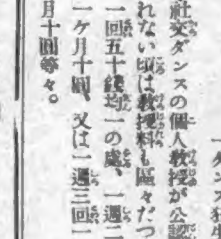 社交ダンスの個人教授が公認
れない頃は教授料も區々だつ
一回五十錢均一の處、一週二
一ケ月十圓、又は一週三回一
月十圓等々。